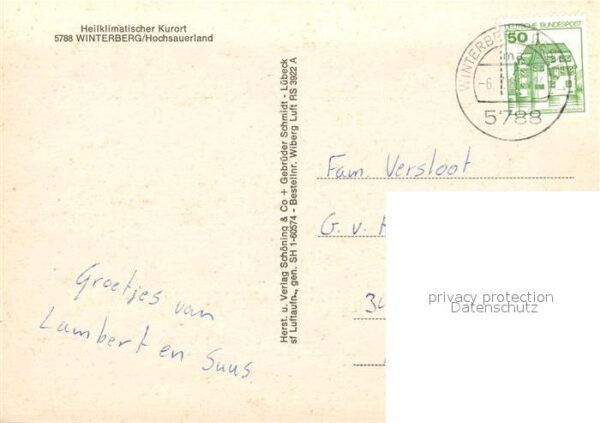 Heilklimatischer Kurort
5788 WINTERBERG/Hochsauerland
DEUTSCHE BUNDESPOST
50
WINTERBE
-6.
5788
Herst. u. Verlag Schöning & Co + Gebrüder Schmidt - Lübeck
sf Luftaufn., gen. SH 1-60574 - Bestellnr. Wiberg Luft RS 3922 A
Fam. Versloot
G. v.
privacy protection
Datenschutz
Groetjes van
Lambert en Suus.